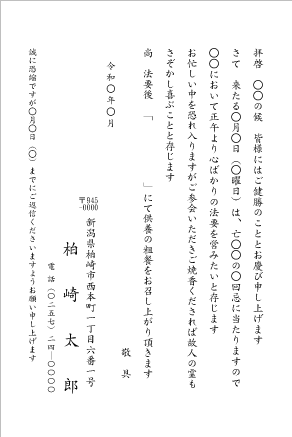 拝啓　〇〇の候　皆様にはご健勝のこととお慶び申し上げます
さて　来たる〇月〇日（〇曜日）は、亡〇〇の〇回忌に当たりますので
〇〇において正午より心ばかりの法要を営みたいと存じます
お忙しい中を恐れ入りますがご参会いただきご焼香くだされば故人の霊も
さぞかし喜ぶことと存じます
尚　法要後「　　　　　」にて供養の粗餐をお召し上がり頂きます
敬具
令和〇年〇月
〒945-0000
新潟県柏崎市西本町一丁目六番一号
柏崎太郎
電話（〇二五七）二四―〇〇〇〇
誠に恐縮ですが〇月〇日（〇）までにご返信くださいますようお願い申し上げます